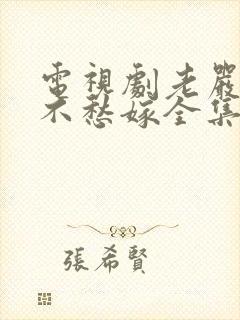 電視劇老嚴
不愁嫁全集
張希賢